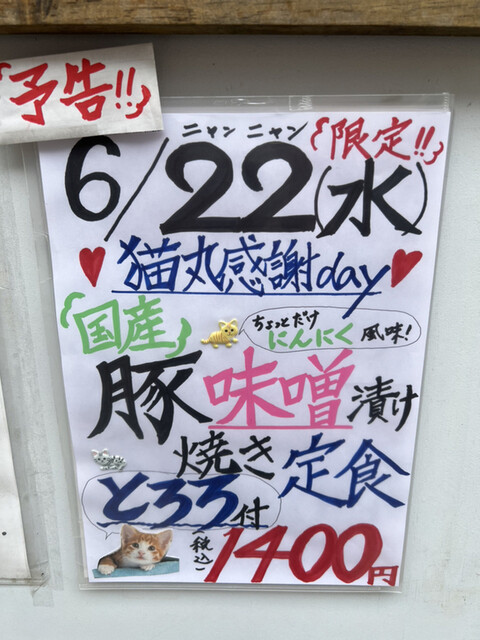 予告!!
ニャン ニャン
限定!!
6/22(水)
猫丸感謝day
国産
ちょっとだけ
にんにく風味!
豚味噌漬け
焼き定食
とろろ付
(税込)
1400円